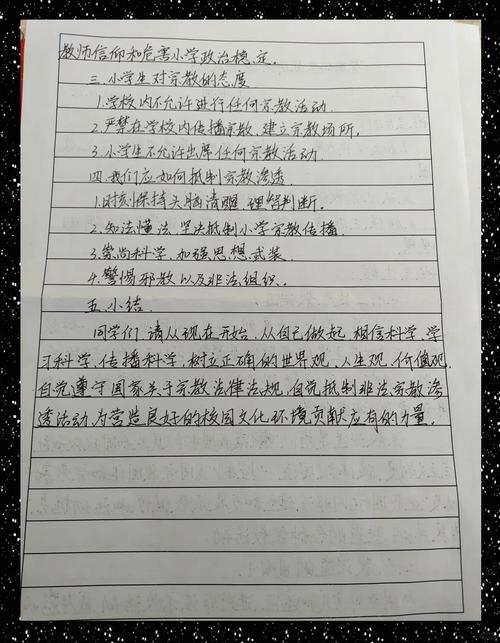 教师信仰和危害小学政治稳定.
三.小学生对宗教的态度
1.学校内不允许进行任何宗教活动.
2.严禁在学校内传播宗教,建立宗教场所.
3.小学生不允许出席任何宗教活动.
四.我们应如何抵制宗教渗透
1.时刻保持头脑清醒,理智判断.
2.知法懂法,坚决抵制小学宗教传播.
3.崇尚科学,加强思想武装.
4.警惕邪教以及非法组织.
五.小结.
同学们,请从现在开始,从自己做起,相信科学,学
习科学,传播科学,树立正确的世界观,人生观,价值观,
自觉遵守国家关于宗教法律法规,自觉抵制非法宗教渗
透活动,为营造良好的校园文化环境贡献应有的力量.